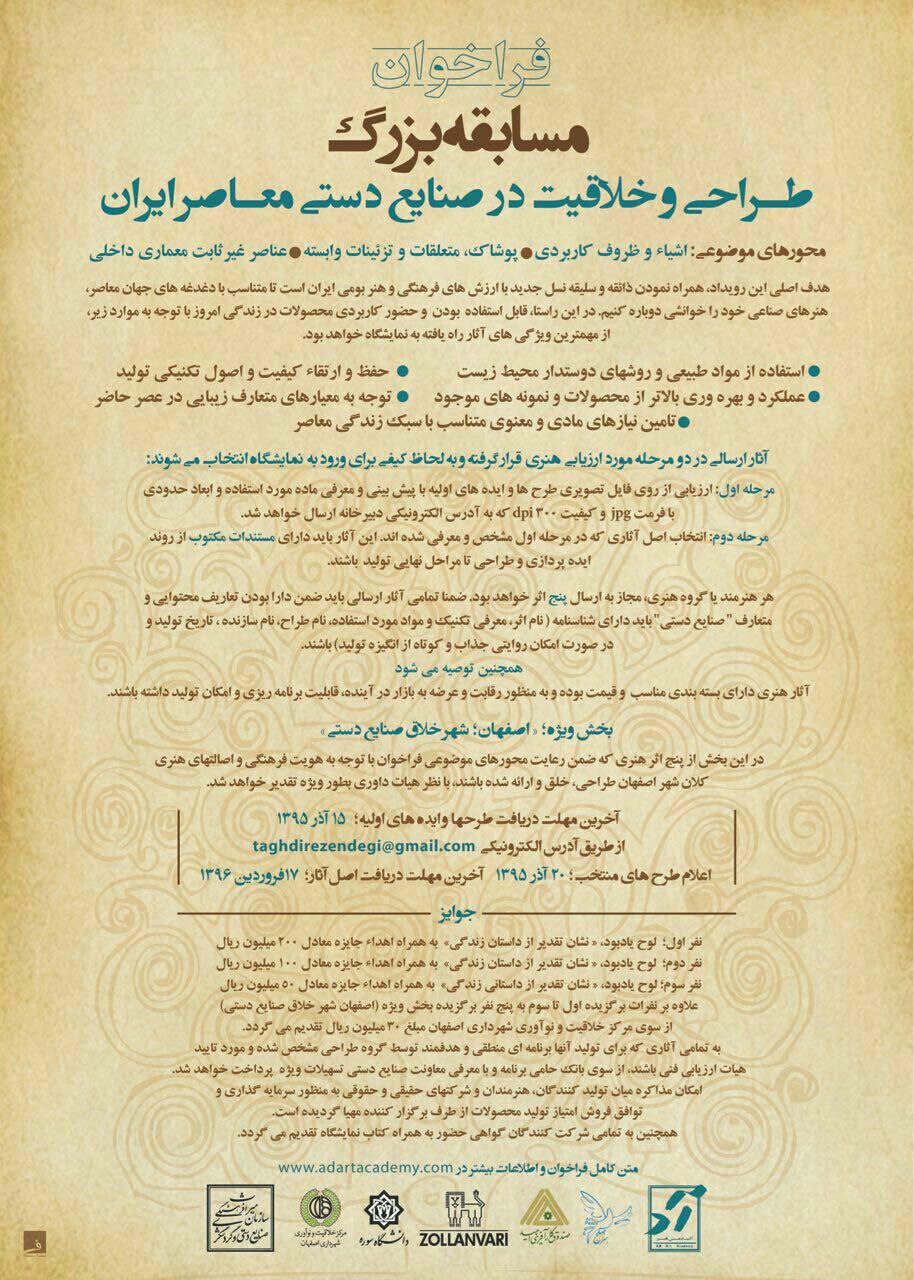 فراخوان
مسابقه بزرگ
طراحی و خلاقیت در صنایع دستی معاصر ایران
محورهای موضوعی: اشیاء و ظروف کاربردی ● پوشاک، متعلقات و تزئینات وابسته ● عناصر غیر ثابت معماری داخلی
هدف اصلی این رویداد، همراه نمودن ذائقه و سلیقه نسل جدید با ارزش های فرهنگی و هنر بومی ایران است تا متناسب با دغدغه های جهان معاصر،
هنرهای صناعی خود را خوانشی دوباره کنیم. در این راستا، قابل استفاده بودن و حضور کاربردی محصولات در زندگی امروز با توجه به موارد زیر،
از مهمترین ویژگی های آثار راه یافته به نمایشگاه خواهد بود.
● استفاده از مواد طبیعی و روشهای دوستدار محیط زیست ● حفظ و ارتقاء کیفیت و اصول تکنیکی تولید
● عملکرد و بهره وری بالاتر از محصولات و نمونه های موجود ● توجه به معیارهای متعارف زیبایی در عصر حاضر
● تامین نیازهای مادی و معنوی متناسب با سبک زندگی معاصر
آثار ارسالی در دو مرحله مورد ارزیابی هنری قرار گرفته و به لحاظ کیفی برای ورود به نمایشگاه انتخاب می شوند:
مرحله اول: ارزیابی از روی فایل تصویری طرح ها و ایده های اولیه با پیش بینی و معرفی ماده مورد استفاده و ابعاد حدودی
با فرمت jpg و کیفیت ۳۰۰ dpi که به آدرس الکترونیکی دبیرخانه ارسال خواهد شد.
مرحله دوم: انتخاب اصل آثاری که در مرحله اول مشخص و معرفی شده اند. این آثار باید دارای مستندات مکتوب از روند
ایده پردازی و طراحی تا مراحل نهایی تولید باشند.
هر هنرمند یا گروه هنری، مجاز به ارسال پنج اثر خواهد بود. ضمنا تمامی آثار ارسالی باید ضمن دارا بودن تعاریف محتوایی و
متعارف "صنایع دستی" باید دارای شناسنامه (نام اثر، معرفی تکنیک و مواد مورد استفاده، نام طراح، نام سازنده، تاریخ تولید و
در صورت امکان روایتی جذاب و کوتاه از انگیزه تولید) باشند.
همچنین توصیه می شود
آثار هنری دارای بسته بندی مناسب و قیمت بوده و به منظور رقابت و عرضه به بازار در آینده، قابلیت برنامه ریزی و امکان تولید داشته باشند.
بخش ویژه؛ « اصفهان؛ شهر خلاق صنایع دستی »
در این بخش از پنج اثر هنری که ضمن رعایت محورهای موضوعی فراخوان با توجه به هویت فرهنگی و اصالتهای هنری
کلان شهر اصفهان طراحی، خلق و ارائه شده باشند، با نظر هیات داوری بطور ویژه تقدیر خواهد شد.
آخرین مهلت دریافت طرحها و ایده های اولیه؛ ۱۵ آذر ۱۳۹۵
از طریق آدرس الکترونیکی taghdirezendegi@gmail.com
اعلام طرح های منتخب؛ ۲۰ آذر ۱۳۹۵ آخرین مهلت دریافت اصل آثار؛ ۱۷ فروردین ۱۳۹۶
جوایز
نفر اول؛ لوح یادبود، « نشان تقدیر از داستان زندگی» به همراه اهداء جایزه معادل ۲۰۰ میلیون ریال
نفر دوم؛ لوح یادبود، « نشان تقدیر از داستان زندگی» به همراه اهداء جایزه معادل ۱۰۰ میلیون ریال
نفر سوم؛ لوح یادبود، « نشان تقدیر از داستانی زندگی» به همراه اهداء جایزه معادل ۵۰ میلیون ریال
علاوه بر نفرات برگزیده اول تا سوم به پنج نفر برگزیده بخش ویژه (اصفهان شهر خلاق صنایع دستی)
از سوی مرکز خلاقیت و نوآوری شهرداری اصفهان مبلغ ۳۰ میلیون ریال تقدیم می گردد.
به تمامی آثاری که برای تولید آنها برنامه ای منطقی و هدفمند توسط گروه طراحی مشخص شده و مورد تایید
هیات ارزیابی فنی باشند، از سوی بانک حامی برنامه و با معرفی معاونت صنایع دستی تسهیلات ویژه پرداخت خواهد شد.
امکان مذاکره میان تولید کنندگان، هنرمندان و شرکتهای حقیقی و حقوقی به منظور سرمایه گذاری و
توافق فروش امتیاز تولید محصولات از طرف برگزار کننده مهیا گردیده است.
همچنین به تمامی شرکت کنندگان گواهی حضور به همراه کتاب نمایشگاه تقدیم می گردد.
متن کامل فراخوان و اطلاعات بیشتر در www.adartacademy.com
سازمان میراث فرهنگی
صنایع دستی و گردشگری
مرکز خلاقیت و نوآوری
شهرداری اصفهان
دانشگاه سوره
ZOLLANVARI
صندوق کارآفرینی امید
آکادمی هنر
AD Art Academy